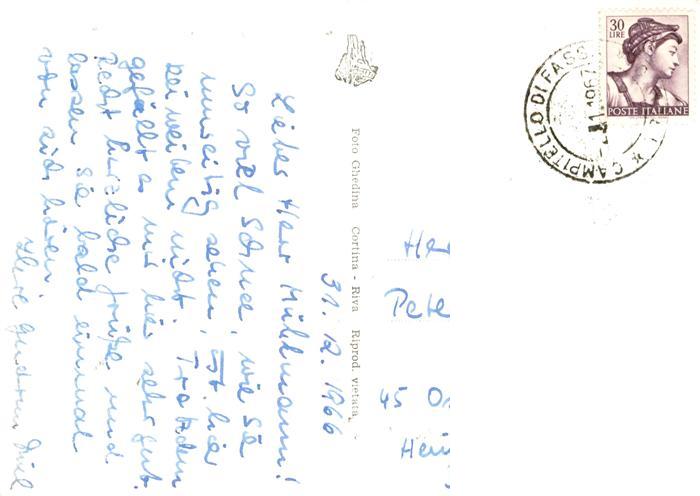 31. 12. 1966
Lieber Herr Mühlmann!
So viel Schnee, wie Sie
umseitig sehen, ist hier
bei weitem nicht. Trotzdem
gefällt es mir hier sehr gut.
Recht herzliche Grüße und
lassen Sie bald einmal
von sich hören.
Ihre Gudrun
Foto Ghedina Cortina - Riva Riprod. vietata.
30
LIRE
POSTE ITALIANE
CAMPITELLO DI FASS
1967
Her
Pete
45 Os
Hein